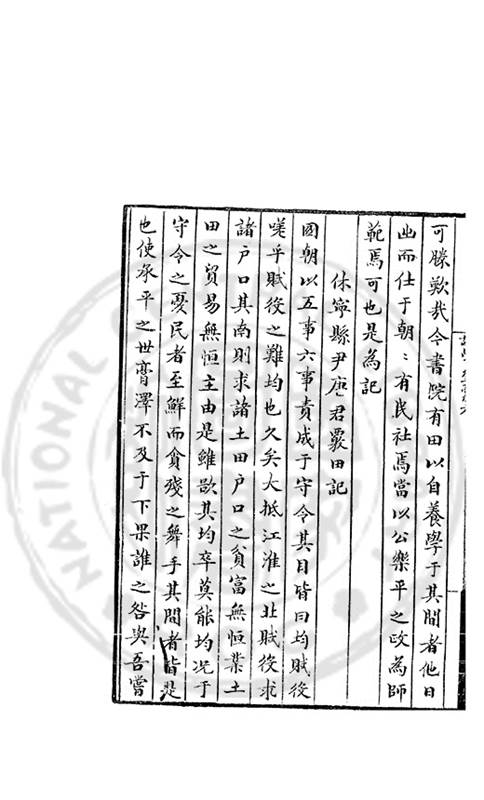 可勝歎哉今書院有田以自養學于其間者他日
出而仕于朝〻有民社焉當以公樂平之政為師
範焉可也是為記
休寧縣尹唐君覈田記
國朝以五事六事責成于守令其目皆曰均賦役
嗟乎賦役之難均也久矣大抵江淮之北賦役求
諸户口其南則求諸土田户口之貧富無恒業土
田之貿易無恒主由是雖欲其均卒莫能均况于
守令之憂民者至鮮而貪殘之舞手其間者皆是
也使承平之世膏澤不及于下果誰之咎與吾嘗
NATIONAL C